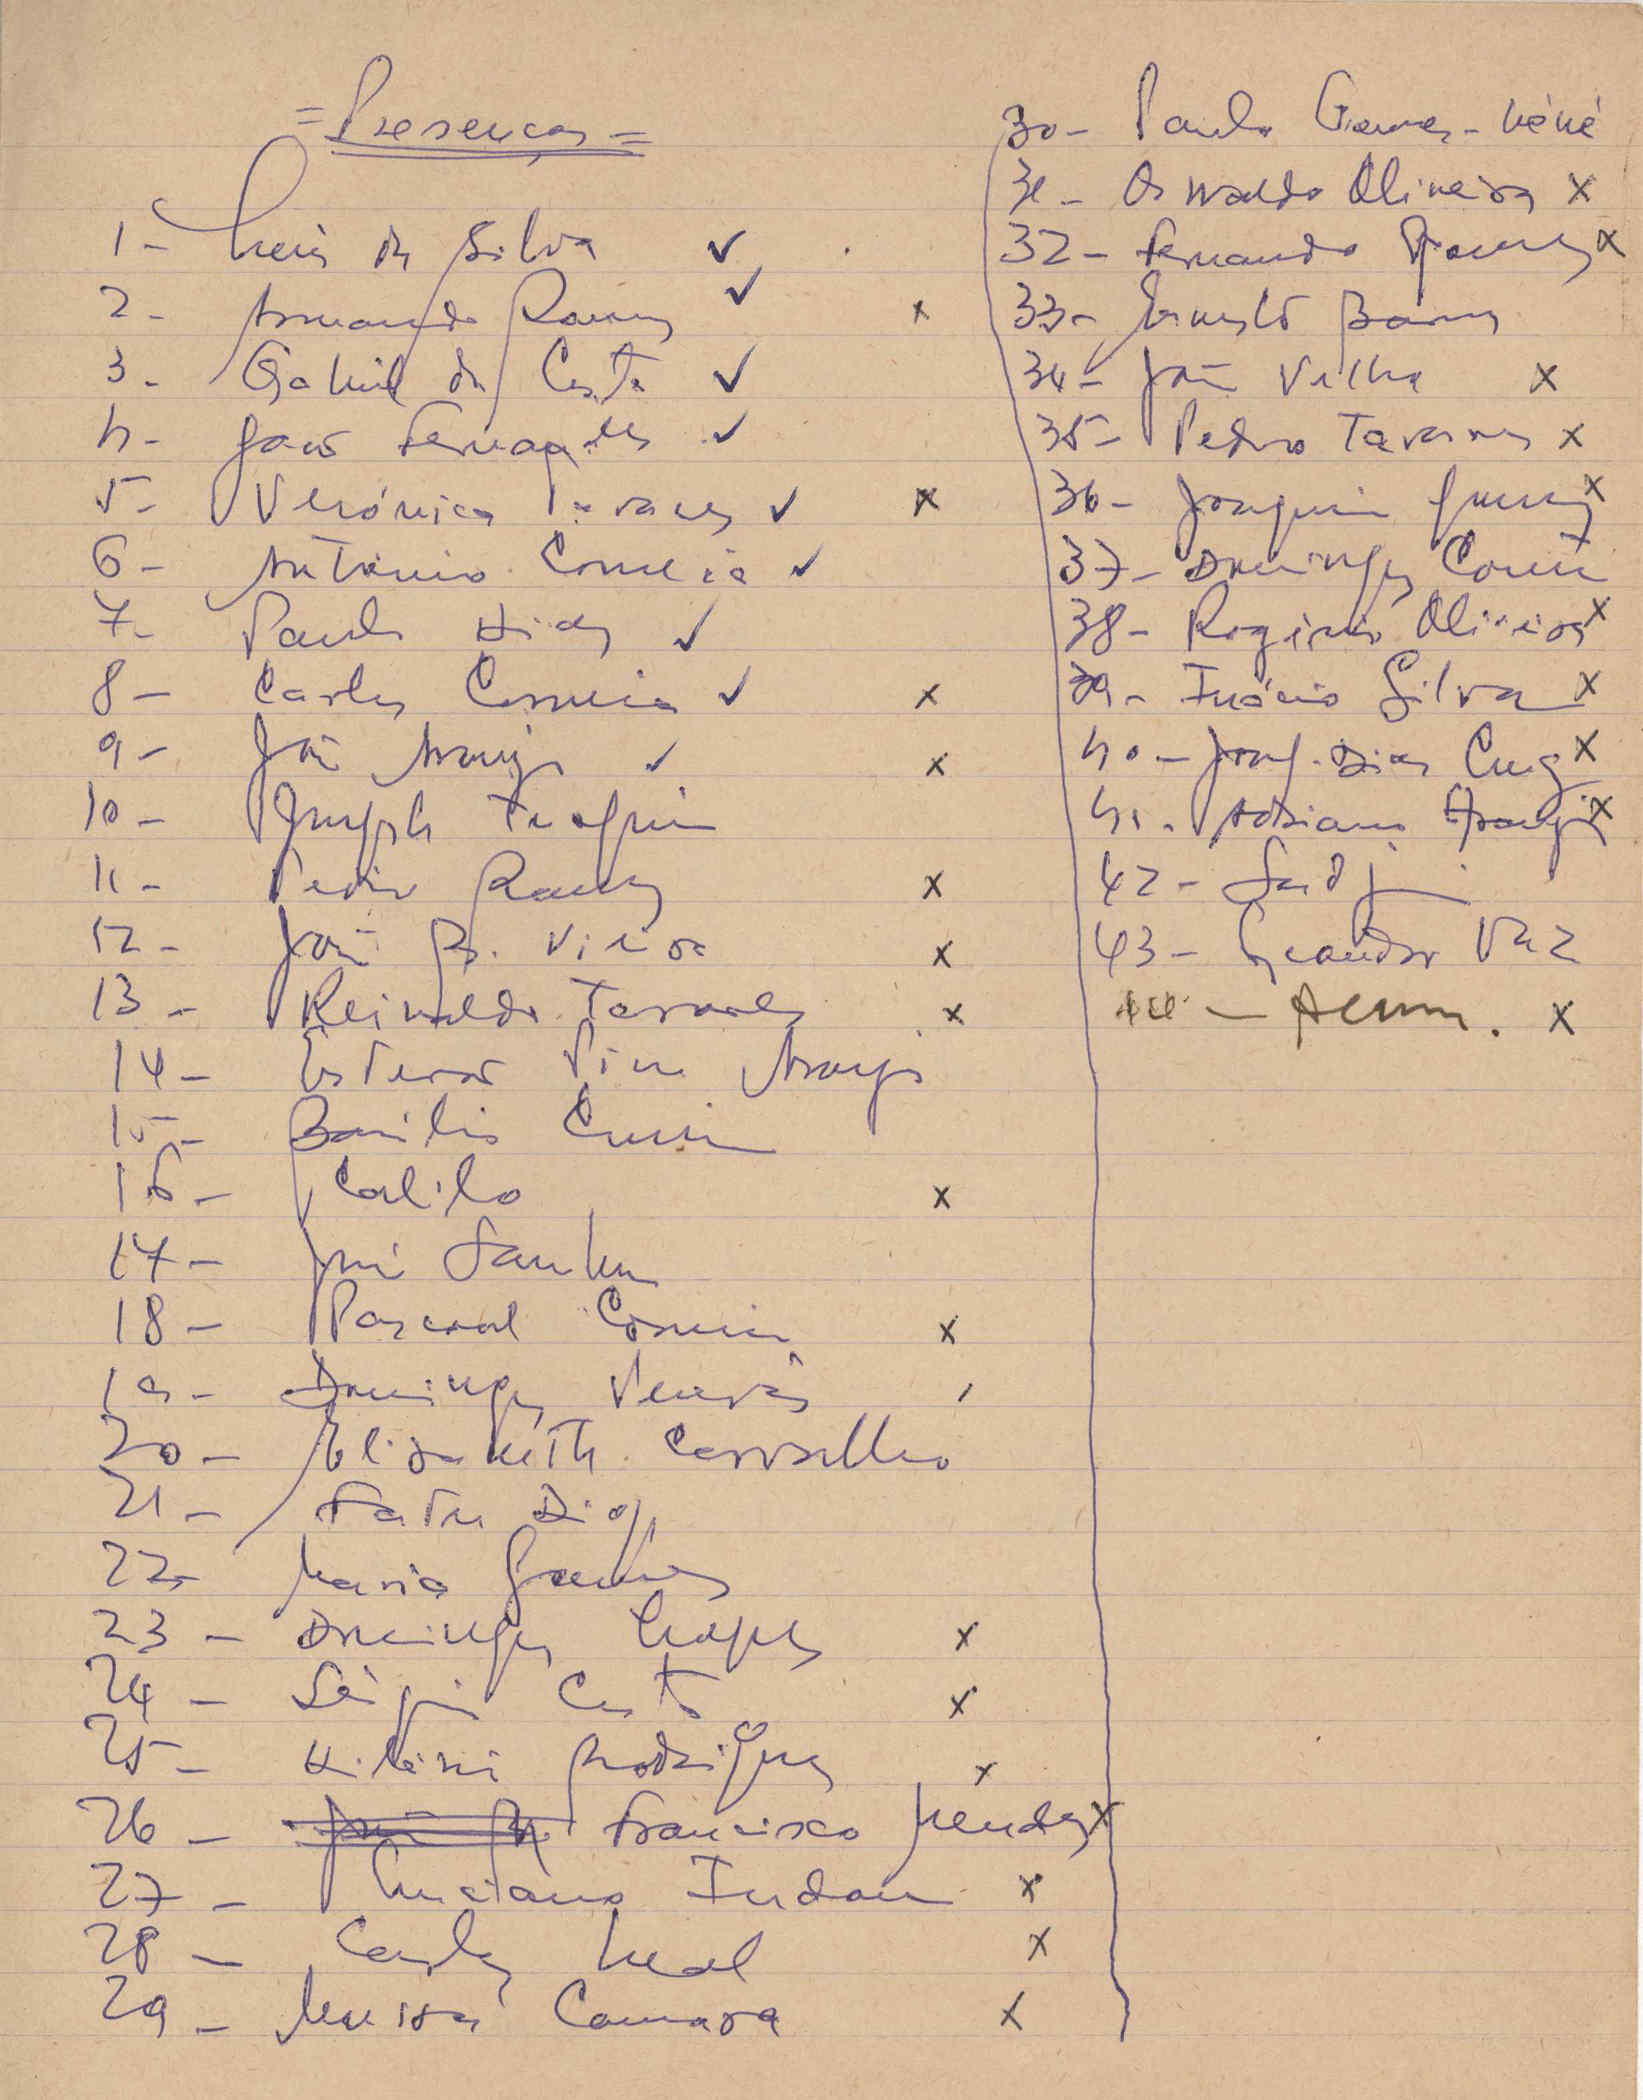 = Presenças =
1- Luís da Silva ✓
2- Armando Ramos ✓ x
3- Gabriel da Costa ✓
4- João Fernandes ✓
5- Verónica Tavares ✓ x
6- António Correia ✓
7- Paulo Dias ✓
8- Carlos Correia ✓ x
9- João Araujo ✓ x
10- Joseph
11- Pedro Ramos x
12- João B. Vieira x
13- Reinaldo Tavares x
14- Estevão Pina Araujo
15- Basílio
16- Calilo x
17- José Sanha
18- Pascoal Correia x
19- Domingos
20- Elisabeth Carvalho
21- Fatu Diop
22- Maria Gomes
23- Domingos Lopes x
24- Sérgio Costa x
25- Hilário Rodrigues x
26- Francisco Mendes x
27- Luciano Indau x
28- Carlos Leal x
29- Mussá Camara x
30- Paulo Gomes - Néné
31- Oswaldo Oliveira x
32- Fernando Gomes x
33- Ernesto Barros
34- João Velha x
35- Pedro Tavares x
36- Joaquim x
37- Domingos
38- Rogério Oliveira x
39- Inácio Silva x
40- Jorge Dias x
41- Adriano Araujo x
42-
43- Leandro Vaz
44- x